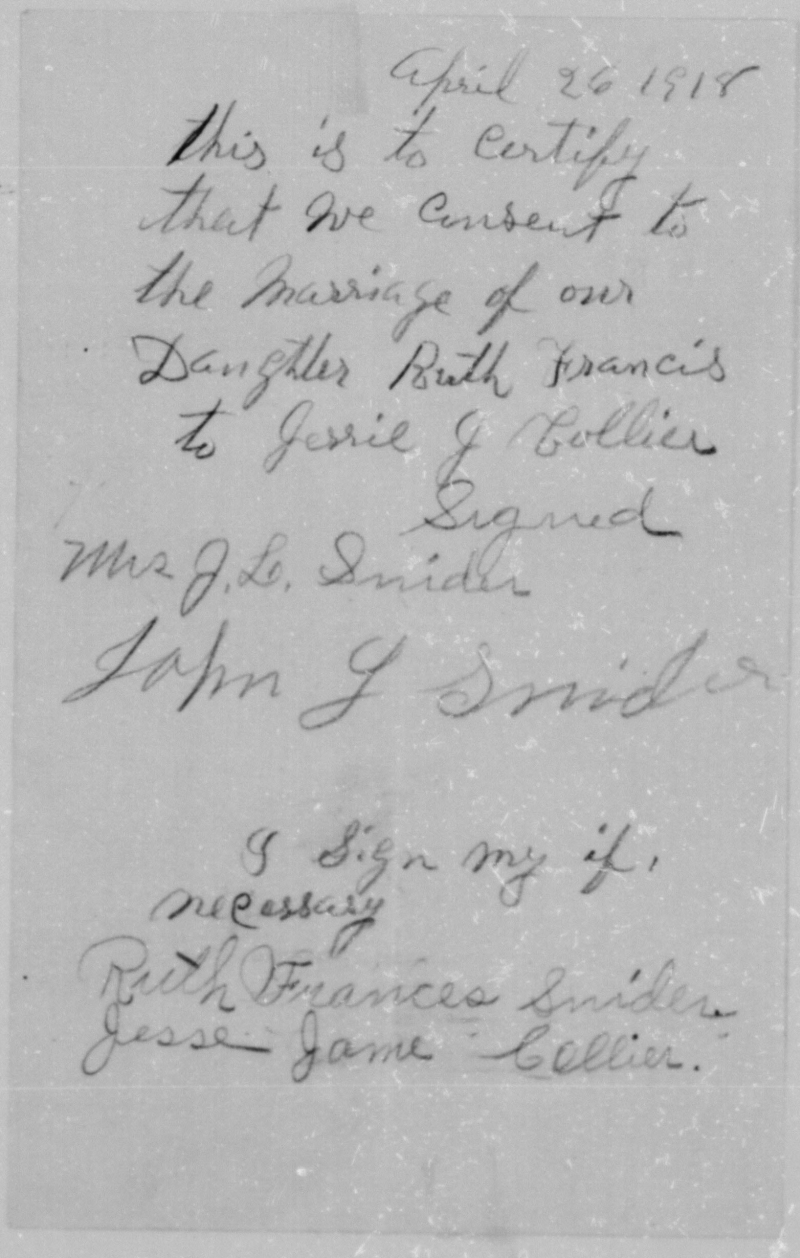 April 26 1918
this is to certify
that we consent to
the marriage of our
Daughter Ruth Francis
to Jessie J Collier
Signed
Mrs J. L. Snider
John L Snider
I Sign my if,
necessary
Ruth Frances Snider
Jesse Jame Collier.